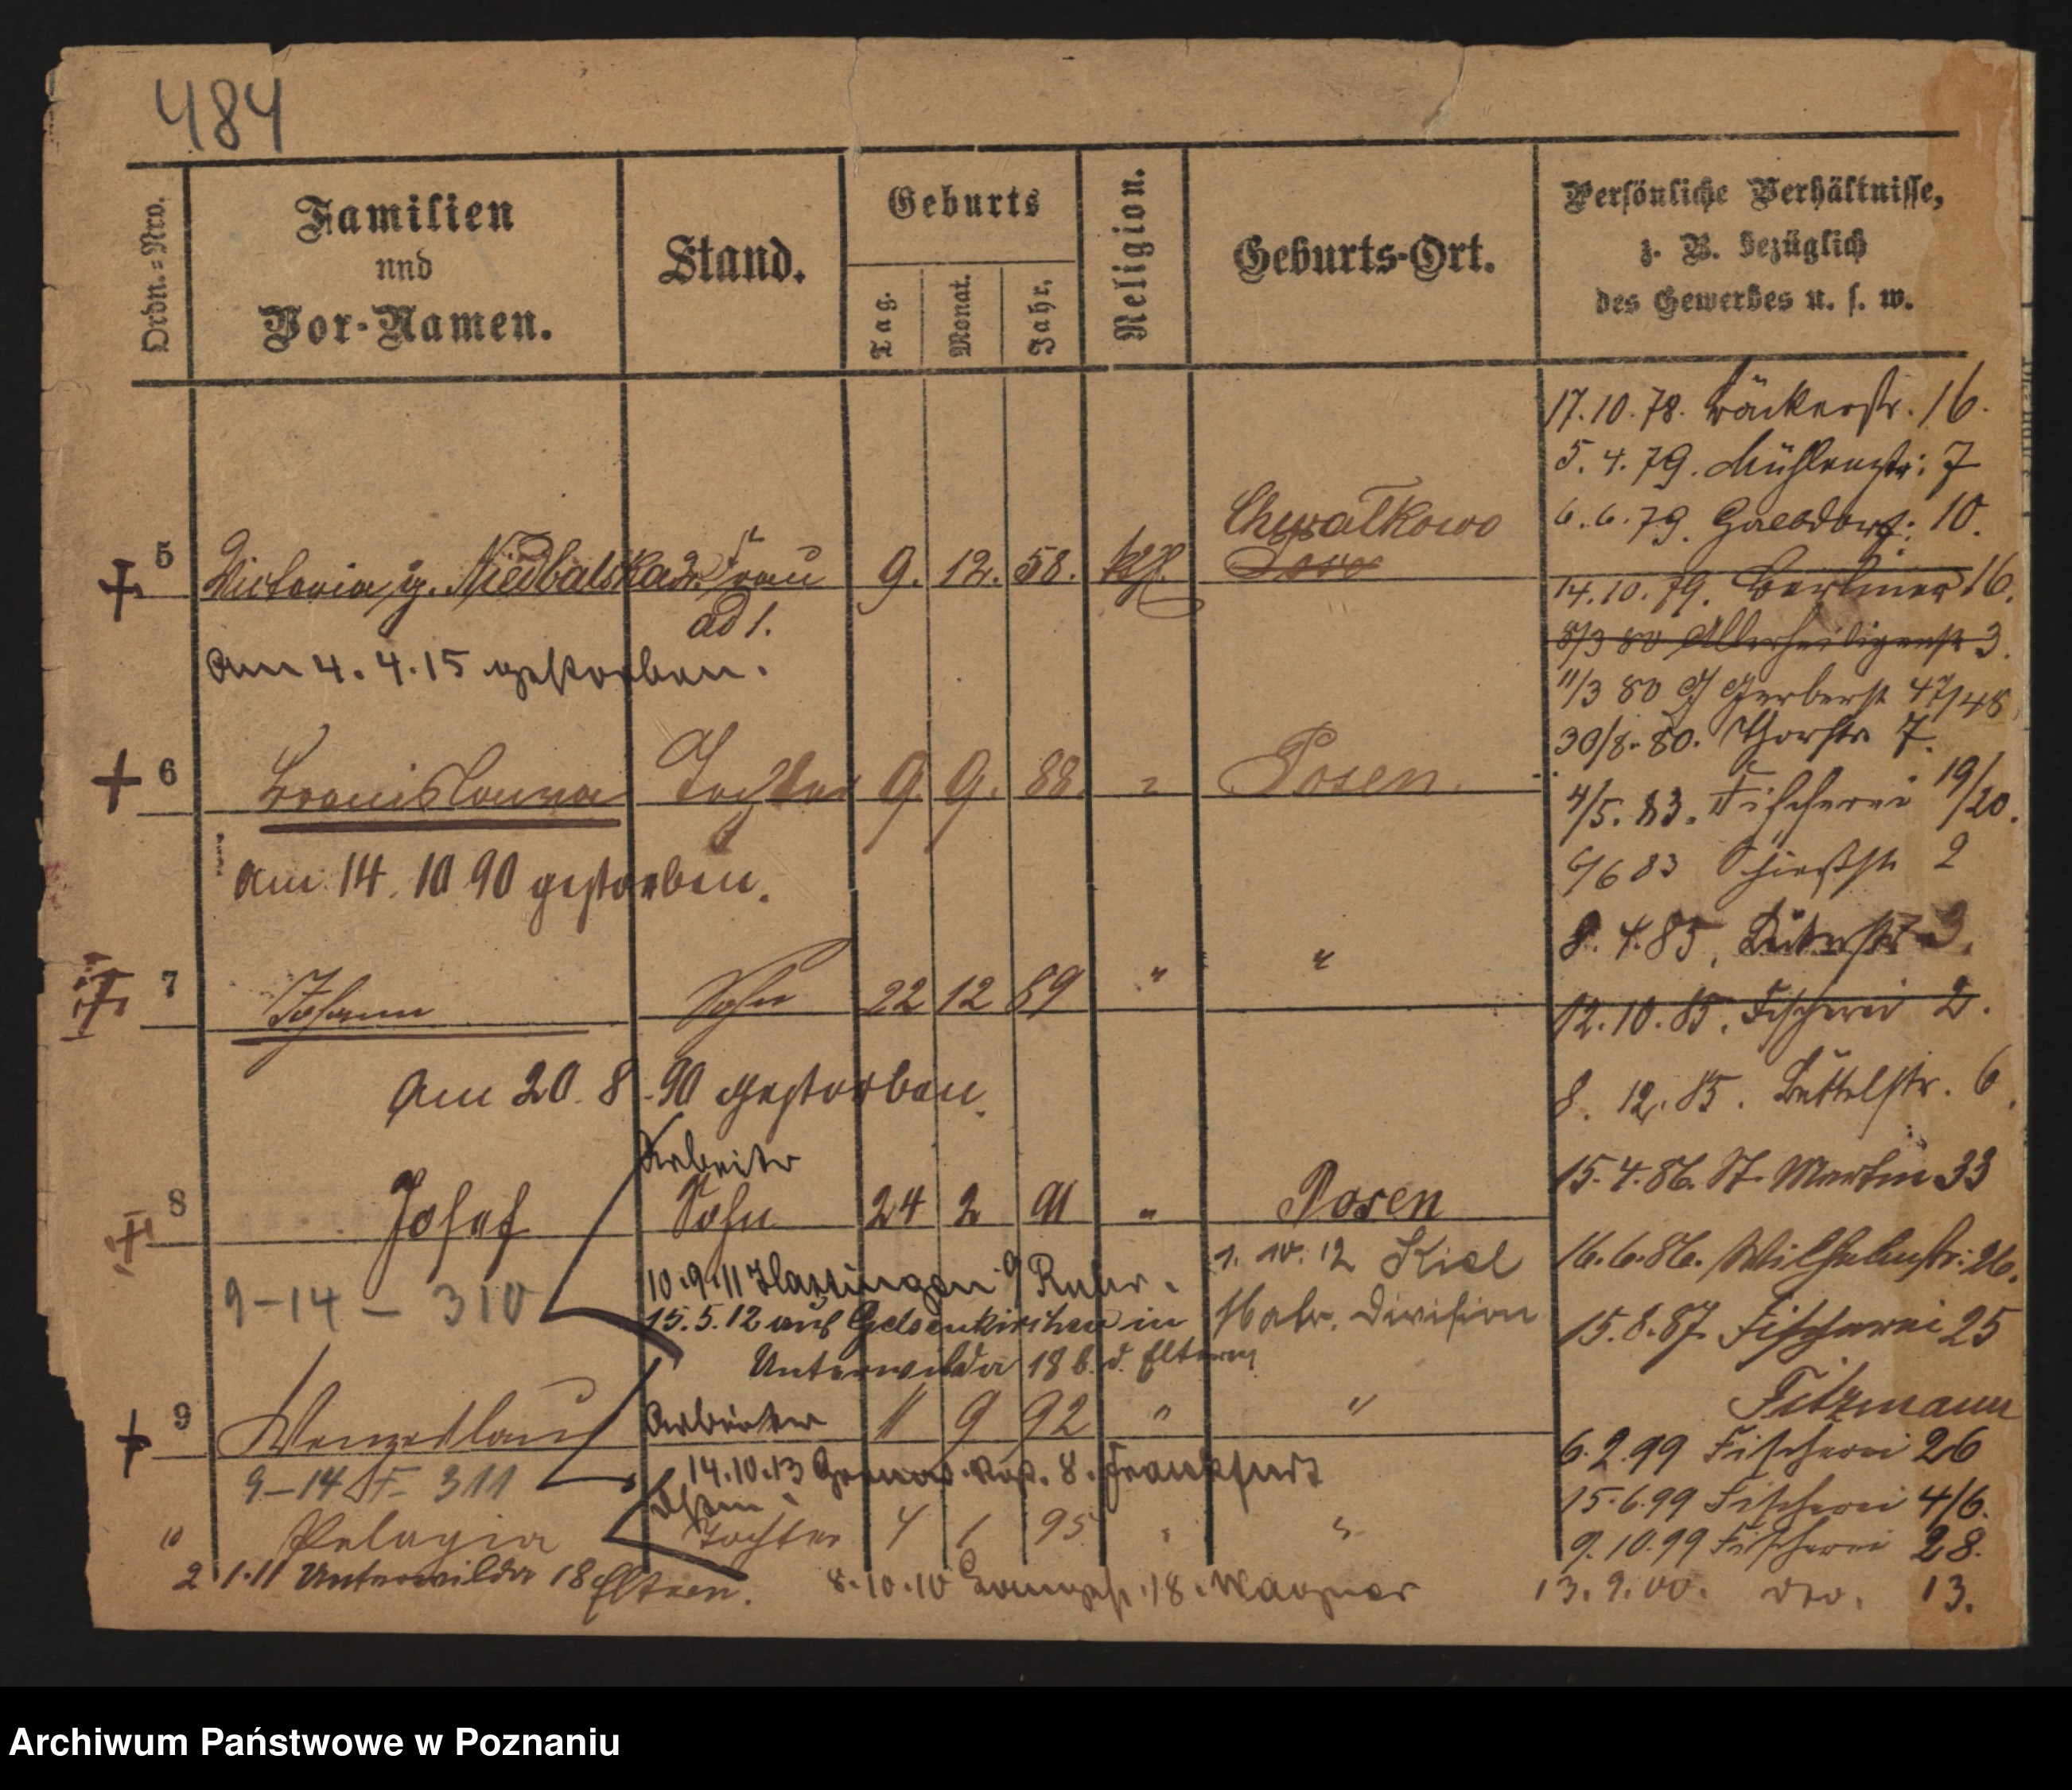 484
Ordn.=Nro.
Familien
und
Vor-Namen.
Stand.
Geburts
Tag.
Monat.
Jahr.
Religion.
Geburts-Ort.
Persönliche Verhältnisse,
z. B. bezüglich
des Gewerbes u. s. w.
17.10.78. Bäckerstr. 16.
5.4.79. Mühlenstr: 7
6.6.79. 10.
5 Victoria g. Niedbalska Frau 9. 12. 58. kth. Chwałkowo
ad 1.
14.10.79. Berliner 16.
am 4.4.15 gestorben.
8/3 80 Allerheiligenstr 3.
11/3 80 Gerberst 47/48
30/8. 80. Thorstr 7.
6 Bronislawa Tochter 9. 9. 88. " Posen.
4/5. 83. Fischerei 19/20.
am 14. 10 90 gestorben.
6/6 83 Schießstr 2
8. 4. 85. 3.
7 Johann Sohn 22 12 89 " "
12.10.85. Fischerei 2.
am 20. 8. 90 gestorben.
8. 12. 85. Büttelstr. 6.
Arbeiter
15.4.86. St. Martin 33
8 Josef Sohn 24 2 91 " Posen
16.6.86. Wilhelmstr. 26.
9-14 - 310
10.9.11 Hattingen Ruhr.
1. 10. 12 Kiel
Matr. Division
15.5.12 aus Gelsenkirchen in
Unterwilda 18 b. d. Eltern
15.8.87 Fischerei 25
Fitzmann
9 Wenzeslaus Arbeiter 11 9 92 " "
6.2.99 Fischerei 26
9-14 F 311
14.10.13 Grenad. Rgt. 8. Frankfurt
15.6.99 Fischerei 4/6.
10 Pelagia Tochter 4 1 95 " "
9.10.99 Fischerei 28.
2 1.11 Unterwilda 18 Eltern.
8.10.10 18. Wagner
13.9.00. dto. 13.
Archiwum Państwowe w Poznaniu